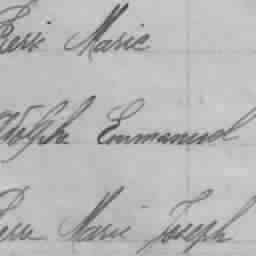 Pierre Marie
Adolphe Emmanuel
Pierre Marie Joseph